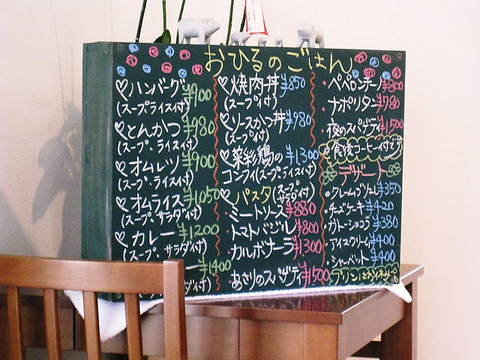 おひるのごはん
ハンバーグ ¥900
(スープ.ライス付)
とんかつ ¥980
(スープ.ライス付)
オムレツ ¥900
(スープ.ライス付)
オムライス ¥1050
(スープ.サラダ付)
カレー ¥1200
(スープ.サラダ付)
ー ¥1400
焼肉丼 ¥850
(スープ付)
ソースかつ丼 ¥980
(スープ付)
菜彩鶏の ¥1300
コンフィ(スープ.ライス付)
パスタ (スープ.サラダ付)
ミートソース ¥880
トマトバジル ¥800
カルボナーラ ¥1300
あさりのスパゲティ ¥1500
ペペロンチーノ ¥800
ナポリタン ¥780
夜のスパゲティ ¥1500
食後コーヒー付です
デザート
クレームブリュレ ¥350
チーズケーキ ¥420
ガトーショコラ ¥380
アイスクリーム ¥400
シャーベット ¥400
プリン